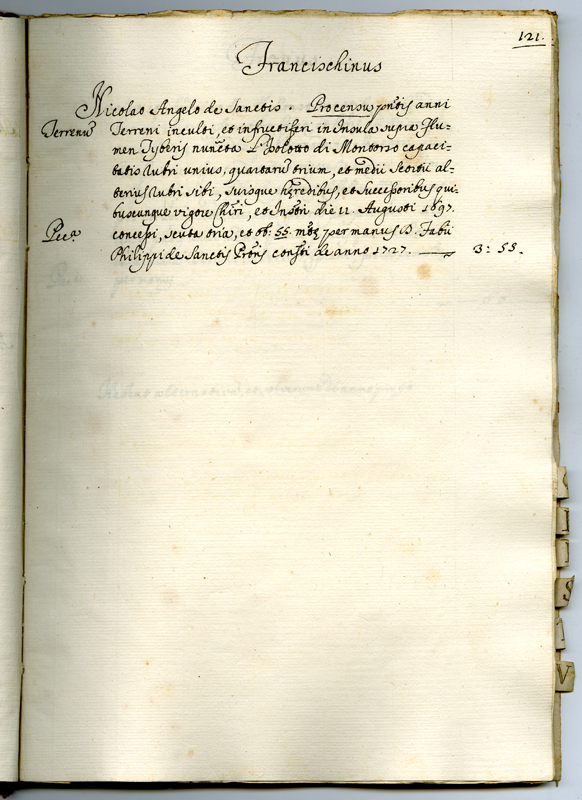 121.
Francischinus
Nicolao Angelo de Sanctis. Pro censu pñtis anni
Terrenũ Terreni inculti, et infructiferi in Insula supra Flu-
men Tyberis nuncta L'Isolotto di Montorso capaci-
tatis rubri unius, quartarũ trium, et medii Scortii al-
terius rubri sibi, suisque hæredibus, et successoribus qui-
buscunque vigore Chiri, et Instri die 11. Augusti 1697.
Pec.ª concessi, scuta tria, et bb: 55. mbz per manus D. Fabii
Philippi de Sanctis de anno 1727. — 3: 55.
S
V